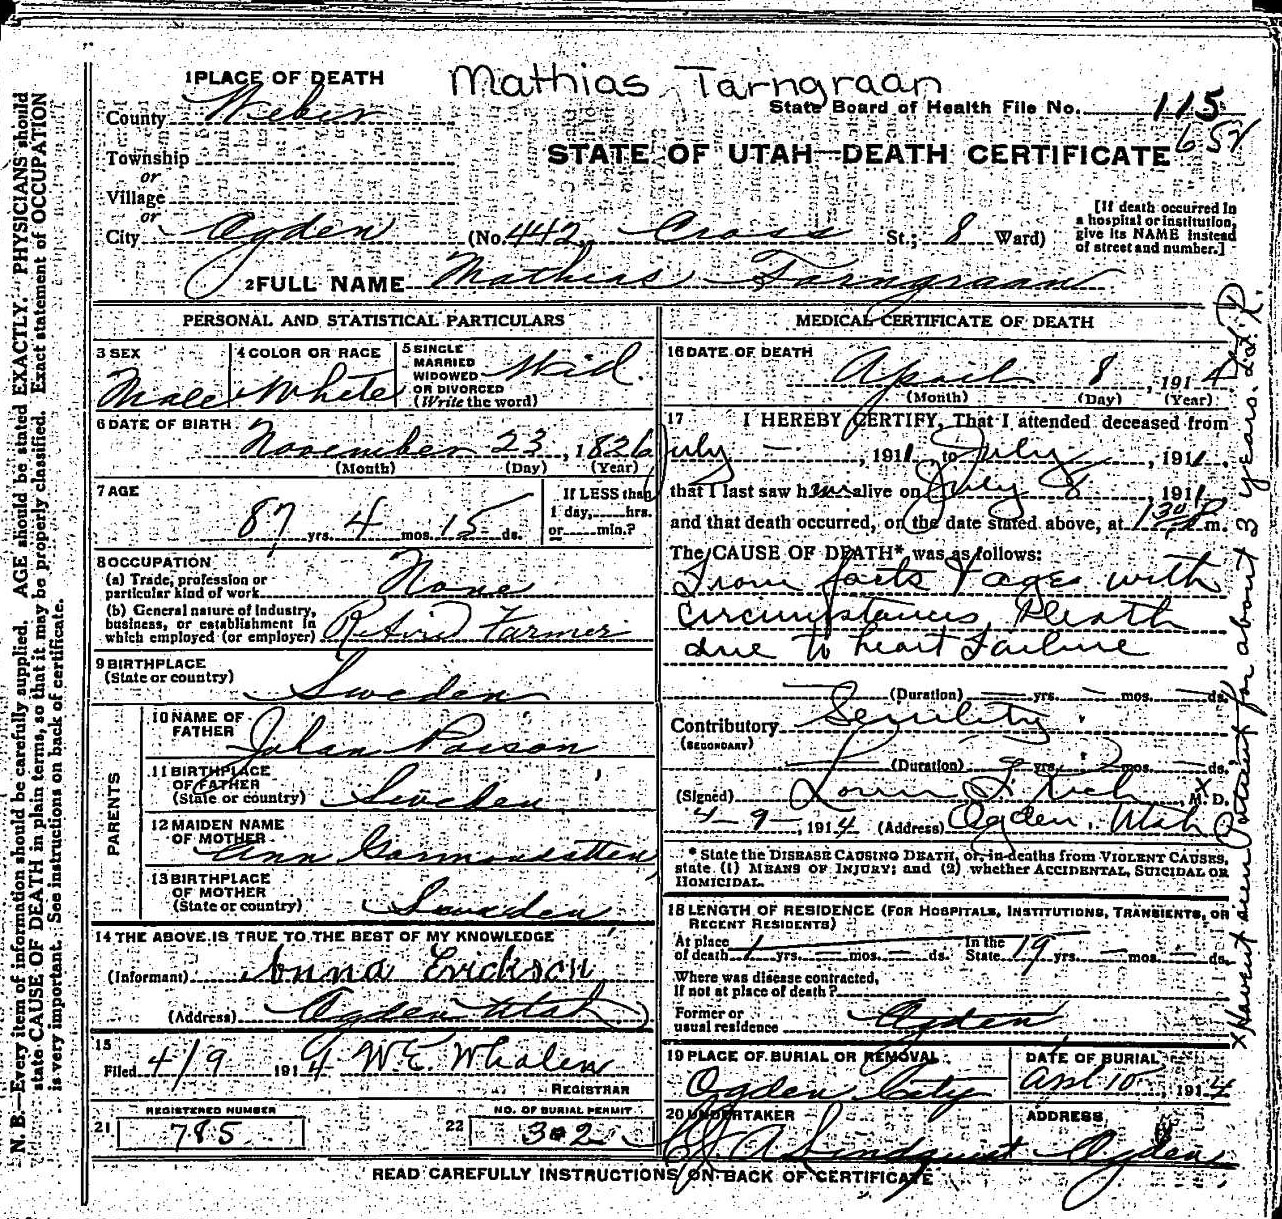 Mathias Tarngraan
1 PLACE OF DEATH
County Weber
State Board of Health File No. 115
652
Township
or
Village
or
STATE OF UTAH—DEATH CERTIFICATE
City Ogden (No. 442, Cross St.; 8 Ward)
[If death occurred in
a hospital or institution,
give its NAME instead
of street and number.]
2 FULL NAME Mathias Tarngraan
PERSONAL AND STATISTICAL PARTICULARS
3 SEX
Male
4 COLOR OR RACE
White
5 SINGLE
MARRIED
WIDOWED
OR DIVORCED
(Write the word)
Wid.
6 DATE OF BIRTH
November 23, 1826
(Month) (Day) (Year)
7 AGE
87 yrs. 4 mos. 15 ds.
If LESS than
1 day, hrs.
or min.?
8 OCCUPATION
(a) Trade, profession or
particular kind of work None
(b) General nature of industry,
business, or establishment in
which employed (or employer) Retired Farmer
9 BIRTHPLACE
(State or country)
Sweden
PARENTS
10 NAME OF
FATHER
Johan
11 BIRTHPLACE
OF FATHER
(State or country) Sweden
12 MAIDEN NAME
OF MOTHER
Ann
13 BIRTHPLACE
OF MOTHER
(State or country) Sweden
14 THE ABOVE IS TRUE TO THE BEST OF MY KNOWLEDGE
(Informant) Anna Erickson
(Address) Ogden Utah
15
Filed 4/9 1914 W.E. Whalen
REGISTRAR
21 REGISTERED NUMBER
785
22 NO. OF BURIAL PERMIT
302
MEDICAL CERTIFICATE OF DEATH
16 DATE OF DEATH
April 8, 1914
(Month) (Day) (Year)
17 I HEREBY CERTIFY, That I attended deceased from
July —, 1911, to July, 1911.
that I last saw him alive on July 8, 1911
and that death occurred, on the date stated above, at 1 30 P m.
The CAUSE OF DEATH* was as follows:
From facts & ages with
circumstances, Death
due to heart Failure
(Duration) — yrs. — mos. — ds.
Contributory Senility
(SECONDARY)
(Duration) yrs. mos. ds.
(Signed) M. D.
4-9-, 1914 (Address) Ogden, Utah
* State the DISEASE CAUSING DEATH, or, in deaths from VIOLENT CAUSES,
state (1) MEANS OF INJURY; and (2) whether ACCIDENTAL, SUICIDAL OR
HOMICIDAL.
18 LENGTH OF RESIDENCE (FOR HOSPITALS, INSTITUTIONS, TRANSIENTS, OR
RECENT RESIDENTS)
At place
of death 1 yrs. — mos. — ds. In the
State 19 yrs. — mos. — ds.
Where was disease contracted,
If not at place of death?
Former or
usual residence Ogden
19 PLACE OF BURIAL OR REMOVAL
Ogden City
DATE OF BURIAL
Apr 10, 1914
20 UNDERTAKER
A Lindquist
ADDRESS
Ogden
READ CAREFULLY INSTRUCTIONS ON BACK OF CERTIFICATE
N. B.—Every item of information should be carefully supplied. AGE should be stated EXACTLY. PHYSICIANS should
state CAUSE OF DEATH in plain terms, so that it may be properly classified. Exact statement of OCCUPATION
is very important. See instructions on back of certificate.
x Havent seen Patient for about 3 years.